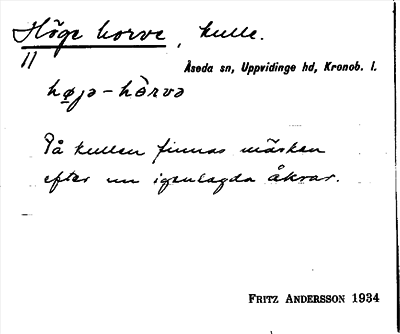 Höge horve, kulle.
11
Åseda sn, Uppvidinge hd, Kronob. l.
højə - hòrvə
På kullen finnas märken
efter nu igenlagda åkrar.
FRITZ ANDERSSON 1934